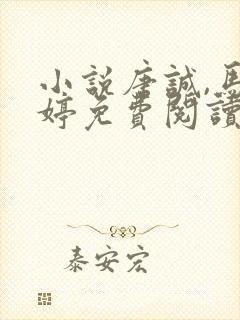 小說唐誠,馬
婷免費閱讀
泰安宏